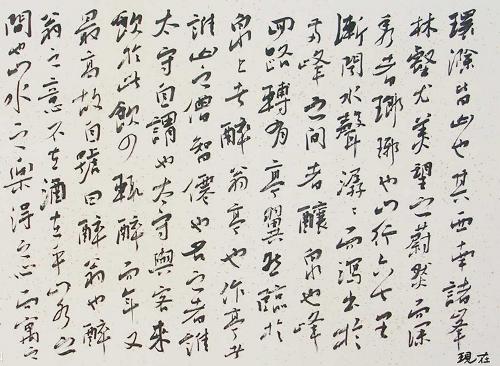 環滁皆山也其西南諸峯
林壑尤美望之蔚然而深
秀者瑯琊也山行六七里
漸聞水聲潺〻而瀉出於
兩峰之間者釀泉也峰
回路轉有亭翼然臨於
泉上者醉翁亭也作亭者
誰山之僧智僊也名之者誰
太守自謂也太守與客來
飲於此飲少輒醉而年又
最高故自號曰醉翁也醉
翁之意不在酒在乎山水之
間也山水之樂得之心而寓之
現在